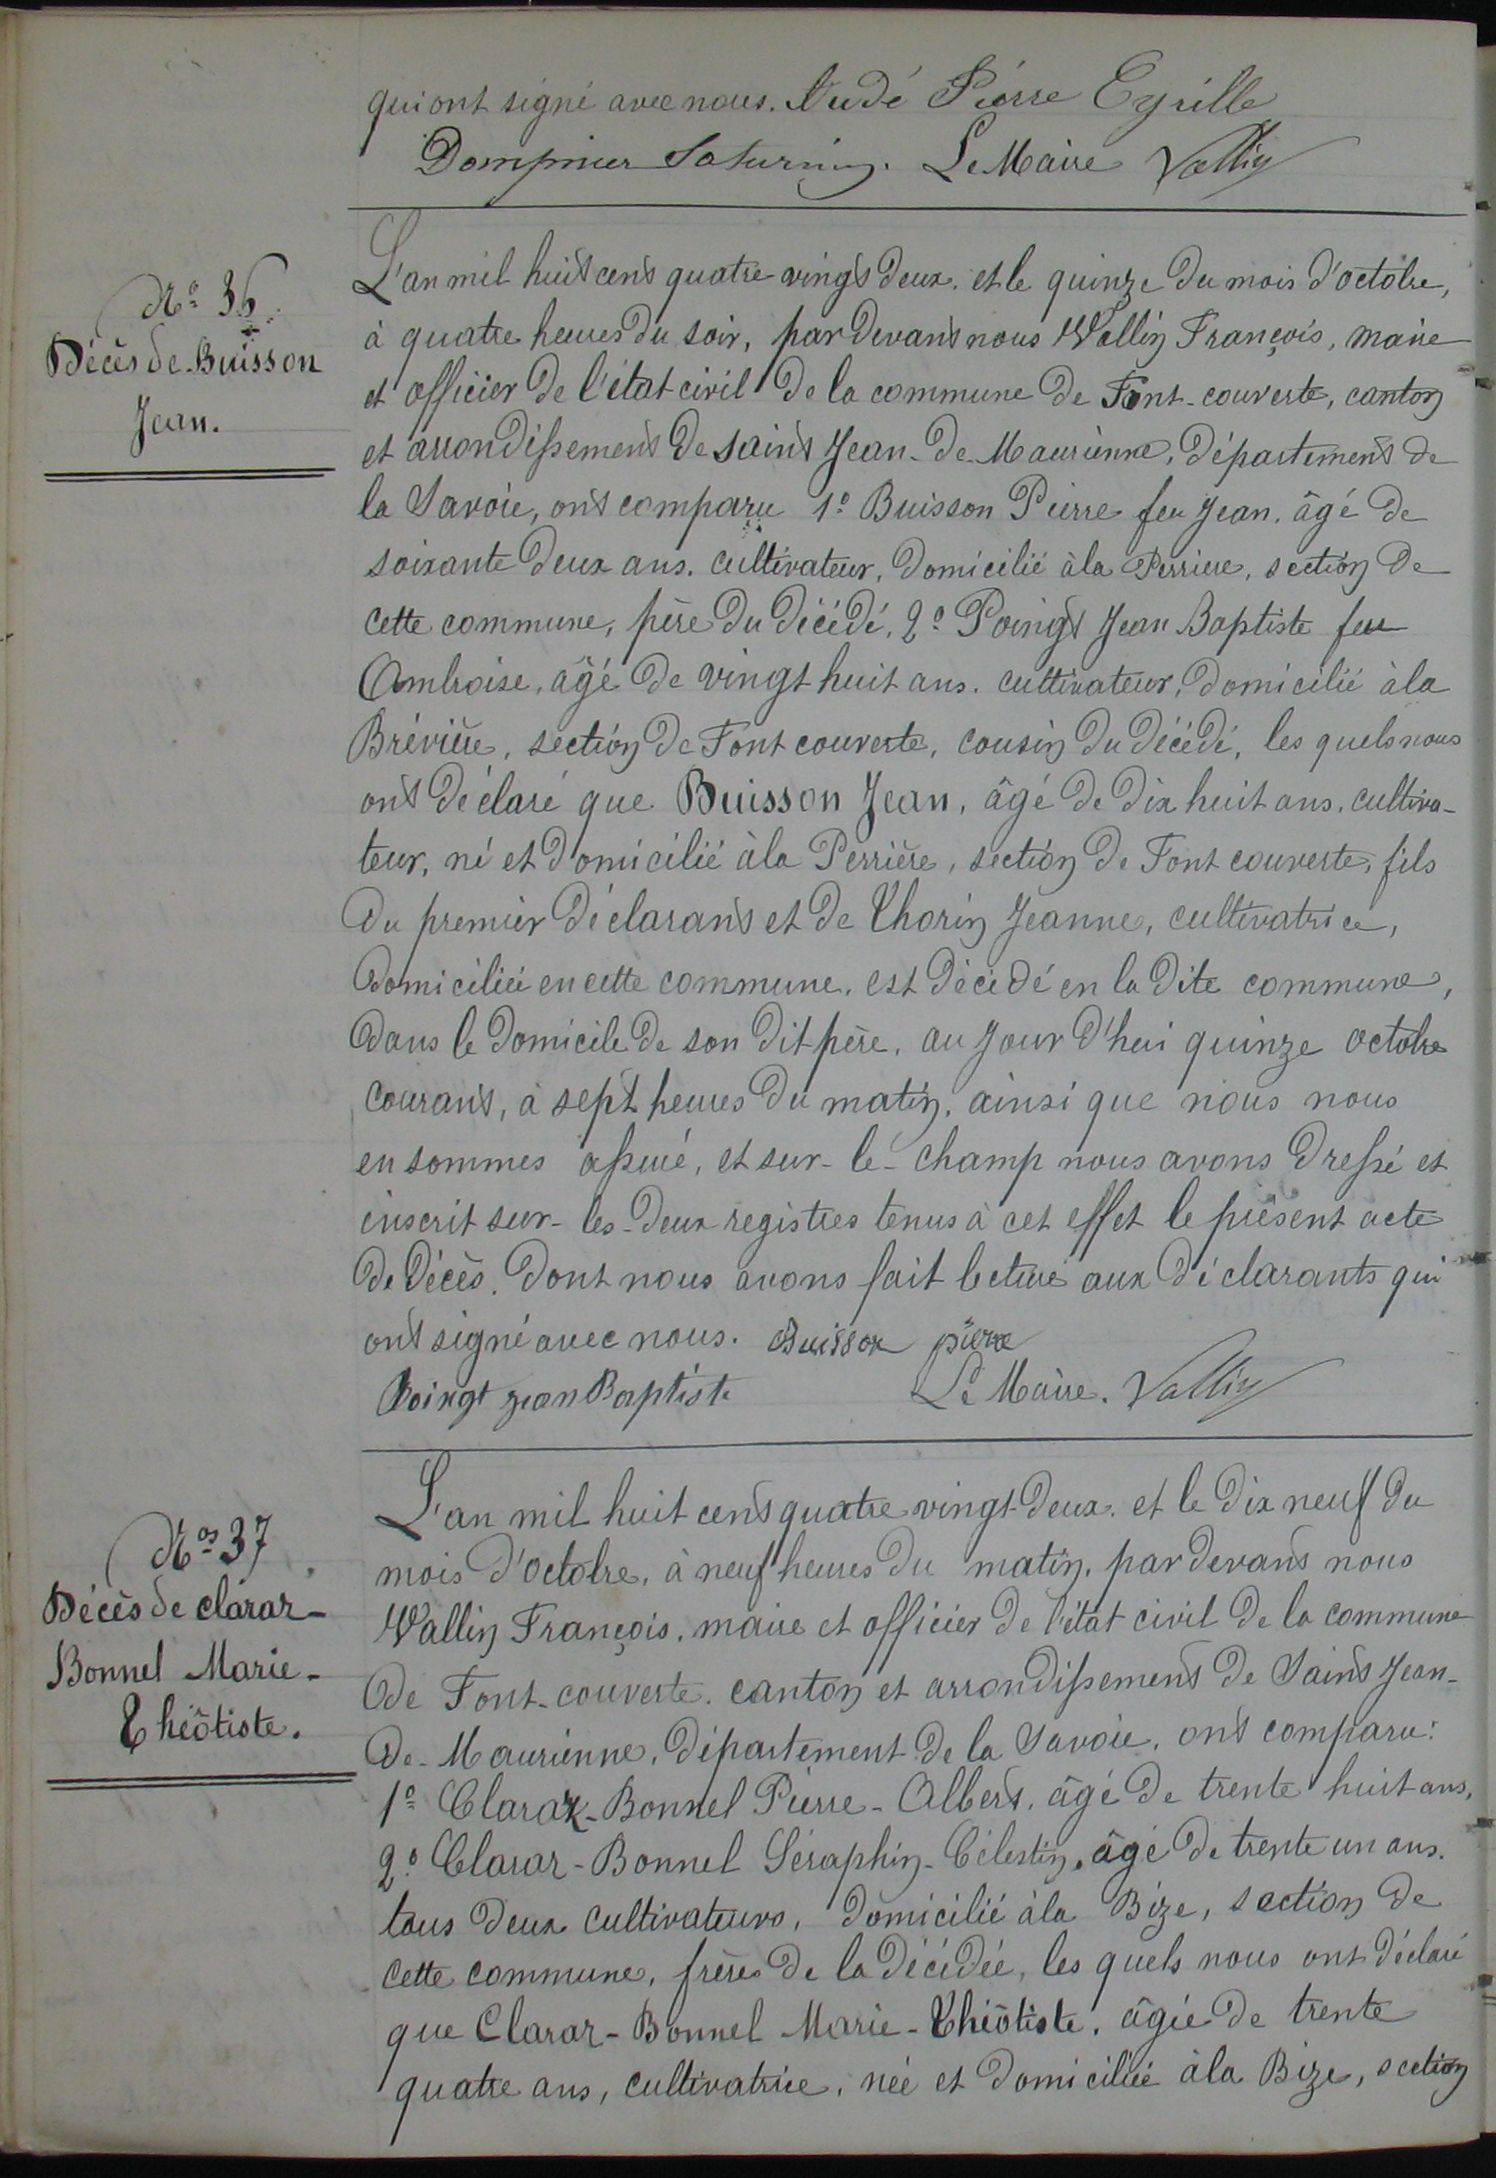 qui ont signé avec nous. Dudé Pierre Cyrille
Dompnier Saturnin. Le Maire Vallin
N° 36
Décès de Buisson
Jean.
L'an mil huit cent quatre vingt deux. et le quinze du mois d'octobre,
à quatre heures du soir, par devant nous Vallin François, maire
et officier de l'état civil de la commune de Font-couverte, canton
et arrondissement de saint Jean-de-Maurienne, département de
la Savoie, ont comparu 1° Buisson Pierre feu Jean, âgé de
soixante deux ans. cultivateur, domicilié à la Perriere, section de
cette commune, père du décédé, 2° Poingt Jean Baptiste feu
Ambroise, âgé de vingt huit ans. cultivateur, domicilié à la
Brévière, section de Font couverte, cousin du décédé, les quels nous
ont déclaré que Buisson Jean, âgé de dix huit ans, cultiva-
teur, né et domicilié à la Perrière, section de Font couverte, fils
du premier déclarant et de Thorin Jeanne, cultivatrice,
domiciliée en cette commune, est décédé en la dite commune,
dans le domicile de son dit père, au jour d'hui quinze octobre
courant, à sept heures du matin, ainsi que nous nous
en sommes assuré, et sur-le-champ nous avons dressé et
inscrit sur-les-deux registres tenus à cet effet le présent acte
de décès. dont nous avons fait lecture aux déclarants qui
ont signé avec nous. Buisson pierre
Poingt jean Baptiste Le Maire. Vallin
N° 37
Décès de Clarar-
Bonnel Marie-
Théotiste.
L'an mil huit cent quatre vingt deux. et le dix neuf du
mois d'octobre, à neuf heures du matin, par devant nous
Vallin François, maire et officier de l'état civil de la commune
de Font-couverte. canton et arrondissement de Saint Jean-
de-Maurienne, département de la Savoie, ont comparu:
1° Claraz-Bonnel Pierre-Albert, âgé de trente huit ans,
2° Clarar-Bonnel Séraphin-Célestin, âgé de trente un ans.
tous deux cultivateurs, domicilié à la Bize, section de
cette commune, frères de la décédée, les quels nous ont déclaré
que Clarar-Bonnel Marie-Théotiste, âgée de trente
quatre ans, cultivatrice, née et domiciliée à la Bize, section